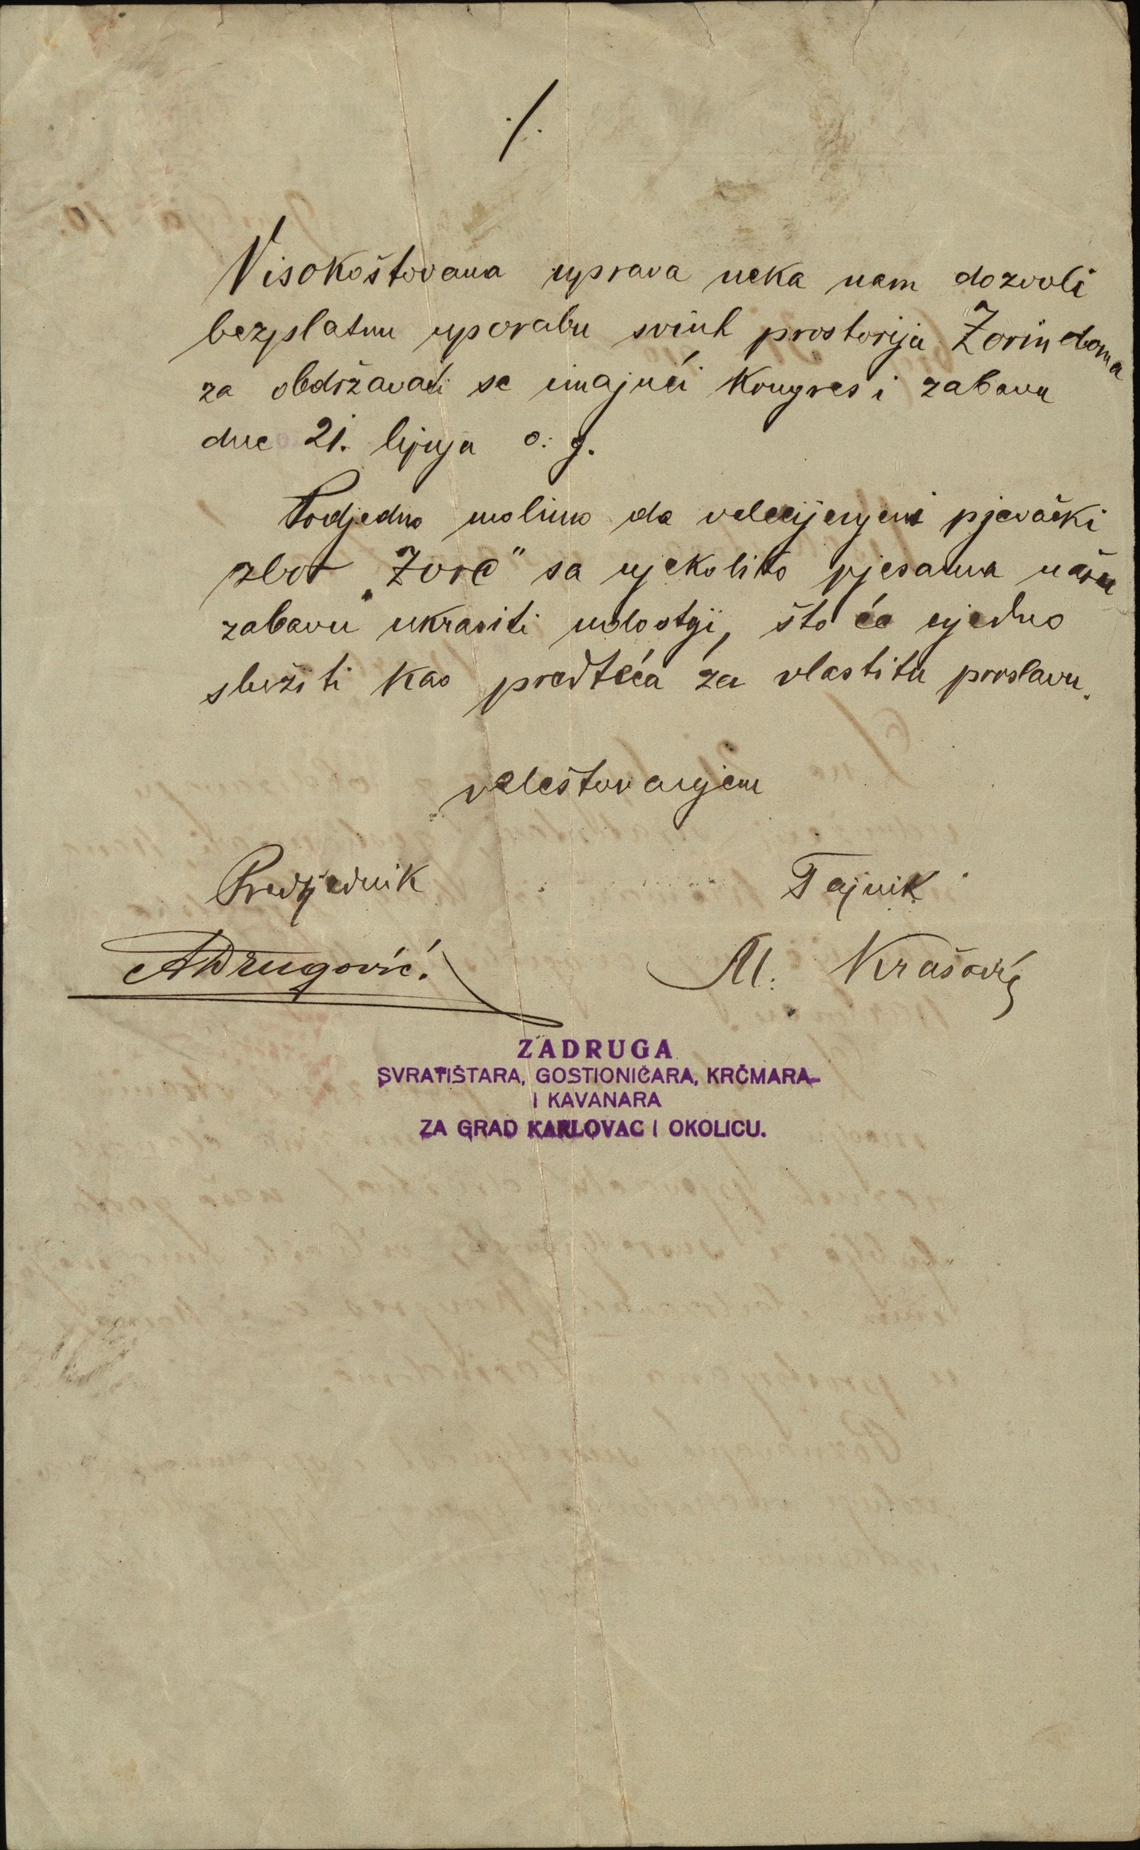 ./.
Visokoštovana uprava neka nam dozvoli
bezplatnu uporabu sviuh prostorija Zorin doma
za obdržavati se imajući kongres i zabavu
dne 21. lipnja o. g.
Podjedno molimo da velecijenjeni pjevački
zbor „Zora" sa njekoliko pjesama našu
zabavu ukrasiti udostoji, što će ujedno
služiti kao predteča za vlastitu proslavu.
veleštovanjem
Predsjednik Tajnik
ADrugović. M. Krašović
ZADRUGA
SVRATIŠTARA, GOSTIONIČARA, KRČMARA
I KAVANARA
ZA GRAD KARLOVAC I OKOLICU.